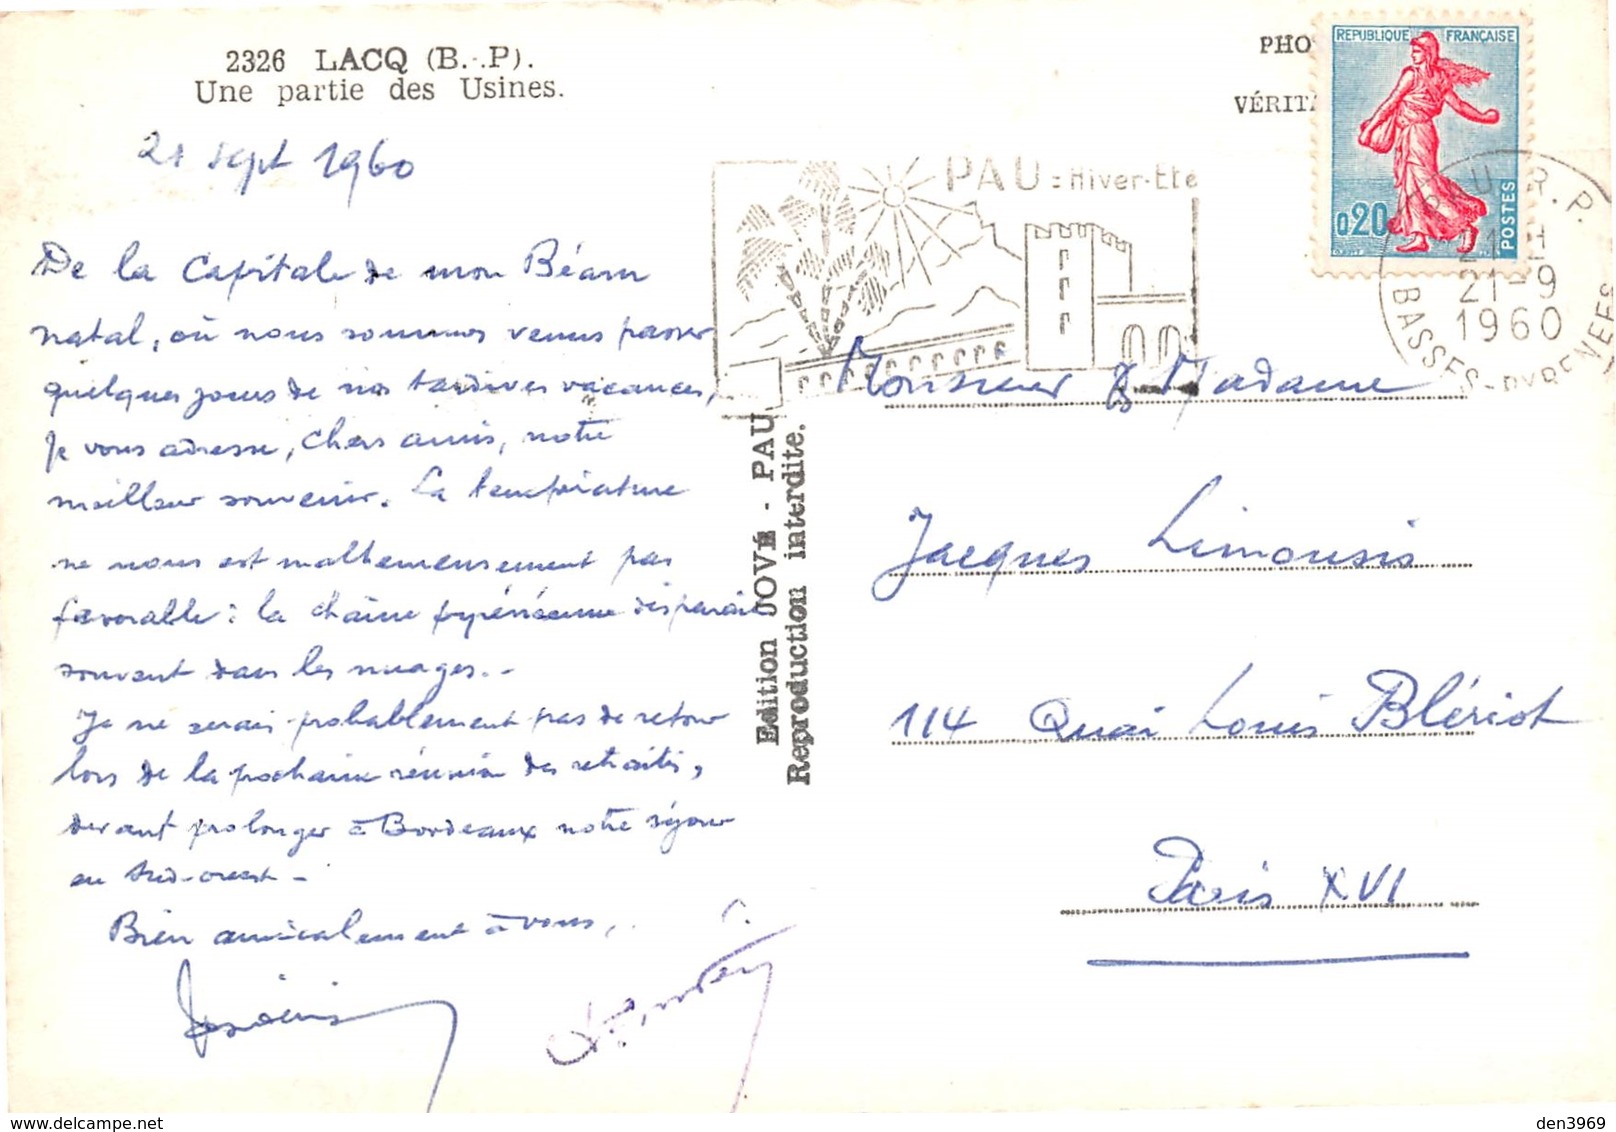 2326 LACQ (B.-P).
Une partie des Usines.
21 sept 1960
De la Capitale de mon Béarn
natal, où nous sommes venus passer
quelques jours de nos tardives vacances,
je vous adresse, chers amis, notre
meilleur souvenir. La température
ne nous est malheureusement pas
favorable : la chaîne pyrénéenne disparait
souvent dans les nuages.-
Je ne serai probablement pas de retour
lors de la prochaine réunion des retraités,
devant prolonger à Bordeaux notre séjour
au Sud-ouest -
Bien amicalement à vous,
Edition JOVÉ - PAU
Reproduction interdite.
PHO
VÉRIT
REPUBLIQUE FRANÇAISE
0,20
POSTES
PAU : Hiver-Eté
PAU R.P.
21-9
1960
BASSES-PYRENEES
Monsieur & Madame
Jacques Limousis
114 Quai Louis Blériot
Paris XVI
den3969